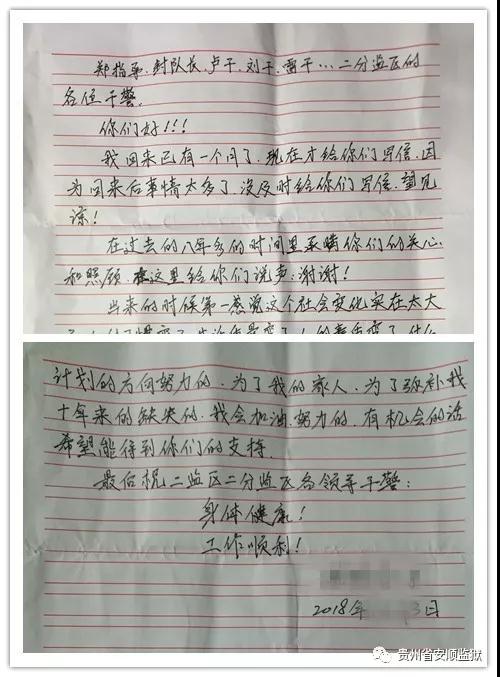 郑指导、封队长、卢干、刘干、雷干…二分监区的
各位干警、
你们好!!!
我回来已有一个月了、现在才给你们写信、因
为回来后事情太多了、没及时给你们写信、望见
谅!
在过去的八年多的时间里承情你们的关心
和照顾、在这里给你们说声:谢谢!
出来的时候第一感觉这个社会变化实在太大
计划的方向努力的、为了我的家人、为了弥补我
十年来的缺失的、我会加油、努力的、有机会的话
希望能得到你们的支持、
最后祝二监区二分监区各领导干警:
身体健康!
工作顺利!
2018年 3日
贵州省安顺监狱